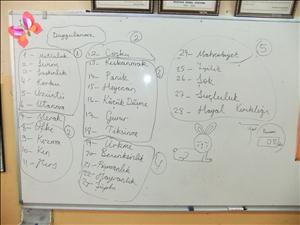 Duygularımız
1 - Mutluluk
4 - Korku
5 - Üzüntü
6 - Utanma
8 - Öfke
9 - Kızma
10 - Kin
11 - Hırs
1
3
12. Coşku
13. Kıskanmak
14 - Panik
15 - Heyecan
16 - Küçük Düşme
17 - Gurur
18 - Tiksinme
2
19 - Ürkme
20 - Beceriksizlik
21 - Pişmanlık
22 - Hayranlık
23 - Şüphe
4
24 - Mahcubiyet
26 - Şok
27 - Suçluluk
28 - Hayal Kırıklığı
5